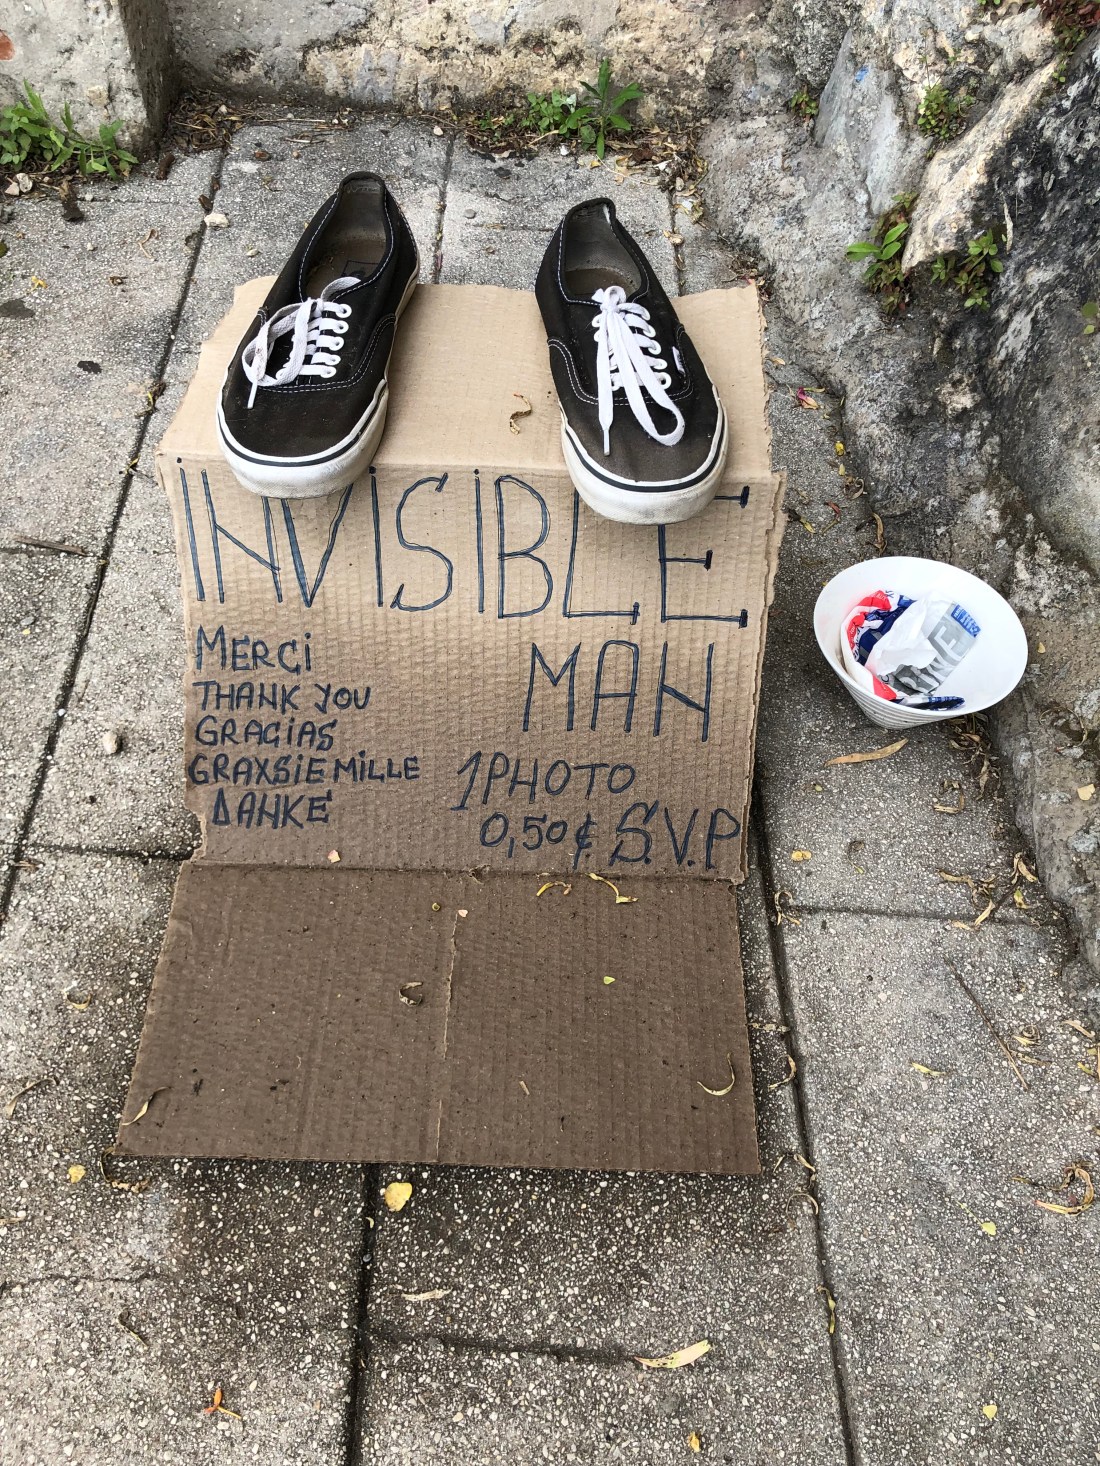 INVISIBLE
MAN
MERCi
THANK YOU
GRACIAS
GRAXSIE MILLE
DANKE
1 PHOTO
0,50 ¢ S.V.P